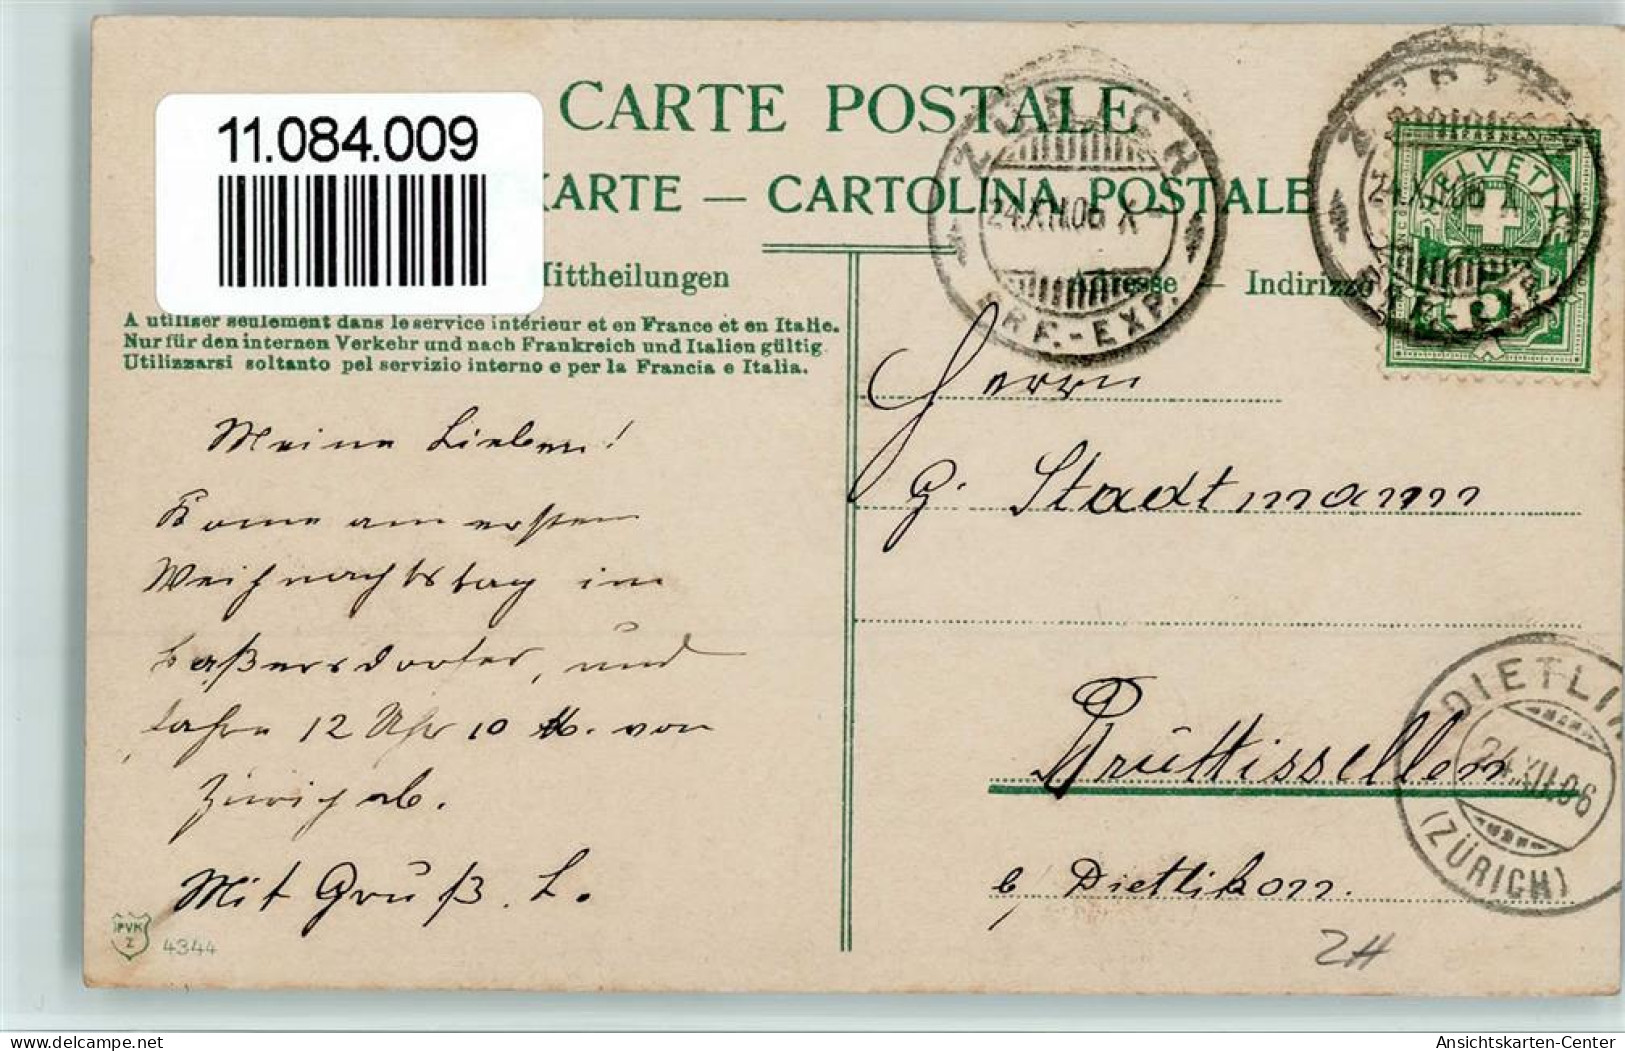 11.084.009
CARTE POSTALE
KARTE — CARTOLINA POSTALE
Mittheilungen
Adresse — Indirizzo
A utiliser seulement dans le service intérieur et en France et en Italie.
Nur für den internen Verkehr und nach Frankreich und Italien gültig.
Utilizzarsi soltanto pel servizio interno e per la Francia e Italia.
ZÜRICH
24.XII.06 X
BRF.-EXP.
ZÜRICH
24.XII.06 X
BRF.-EXP.
HELVETIA
5
Meine Lieben!
Kome am ersten
Weihnachtstag im
Baßersdorfer, und
fahre 12 Uhr 10 M. von
Zürich ab.
Mit Gruß. L.
Herrn
G. Stadtmann
Brüttissellen
b/ Dietlikon.
DIETLIK
24.XII.06
(ZÜRICH)
PVK
Z
4344
delcampe.net
Ansichtskarten-Center